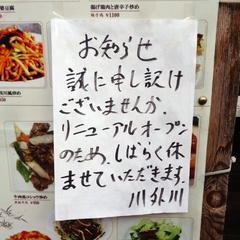 揚げ鶏肉と唐辛子炒め
¥1100
お知らせ
誠に申し訳け
ございませんが、
リニューアルオープン
のため、しばらく休
ませていただきます。
川外川